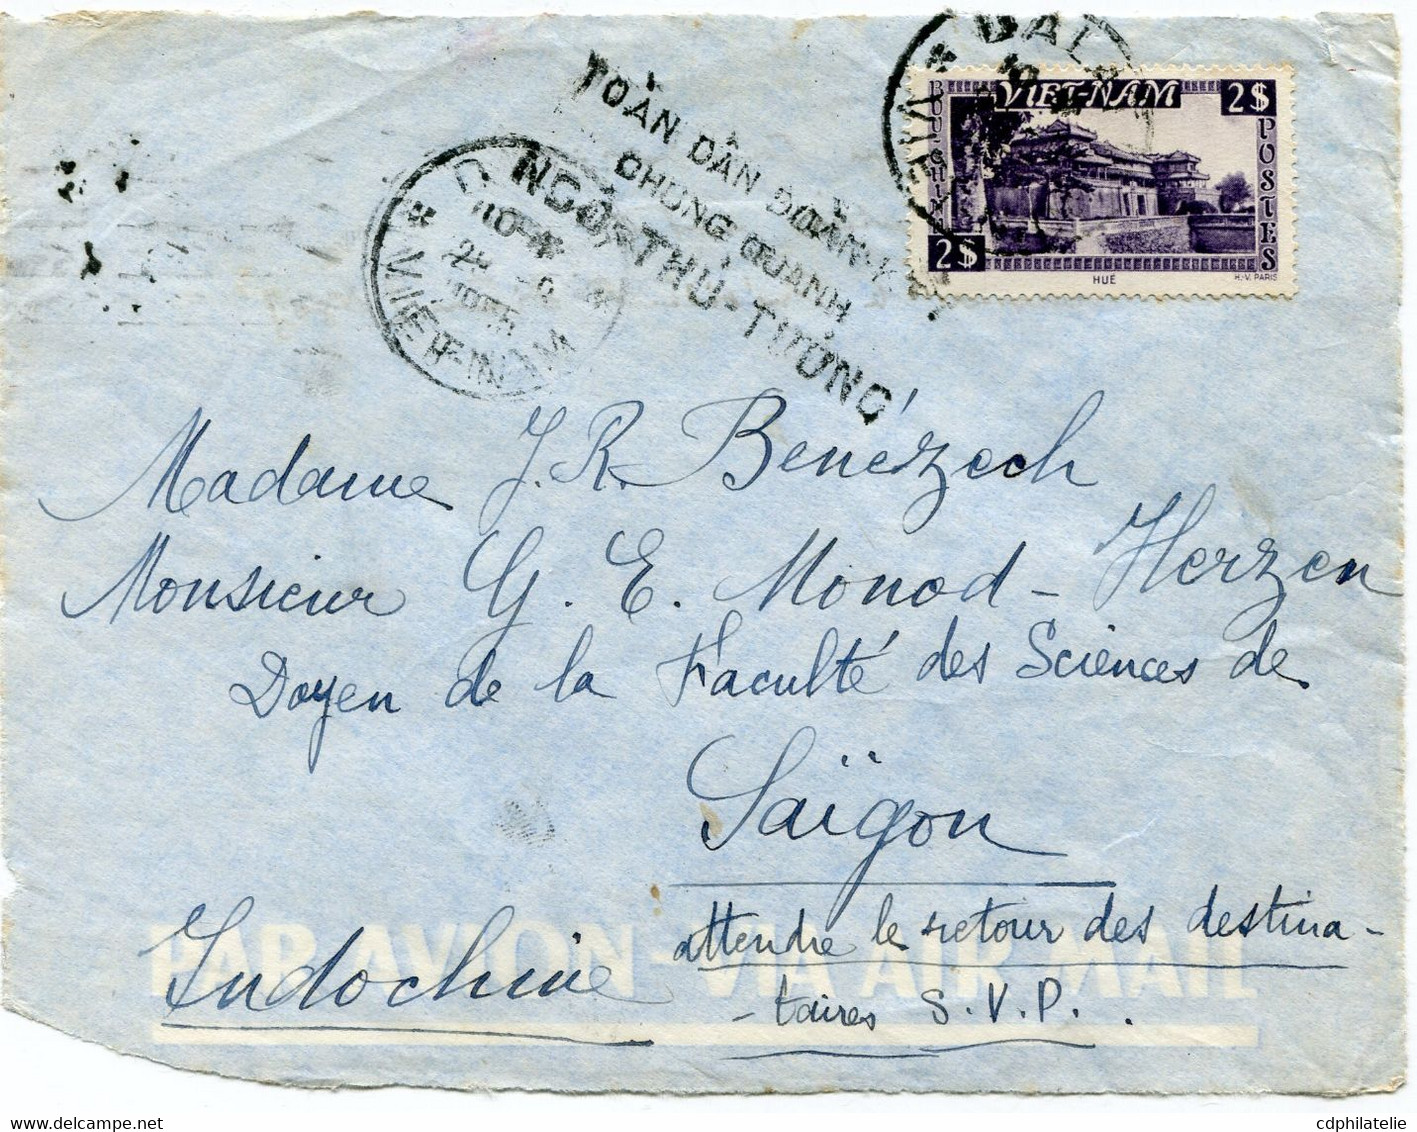 DALAT
VIET
VIET-NAM
2$
BUU-CHINH
POSTES
2$
HUÉ
H.-V. PARIS
TOÀN DÂN ĐOÀN-KẾT
CHUNG QUANH
NGÔ-THỦ-TƯỚNG
1955
VIÊT-NAM
Madame J. R. Benézech
Monsieur G. E. Monod-Herzen
Doyen de la Faculté des Sciences de
Saïgon
attendre le retour des destina-
-taires S.V.P.
Indochine
PAR AVION - VIA AIR MAIL
cdphilatelie